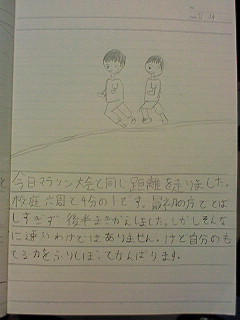 今日マラソン大会と同じ距離を走りました。
校庭六周で4分の1です。最初の方でとば
しすぎず後半まきかえしました。しかしそんな
に速いわけではありません。けど自分のも
てる力をふりしぼってがんばります。